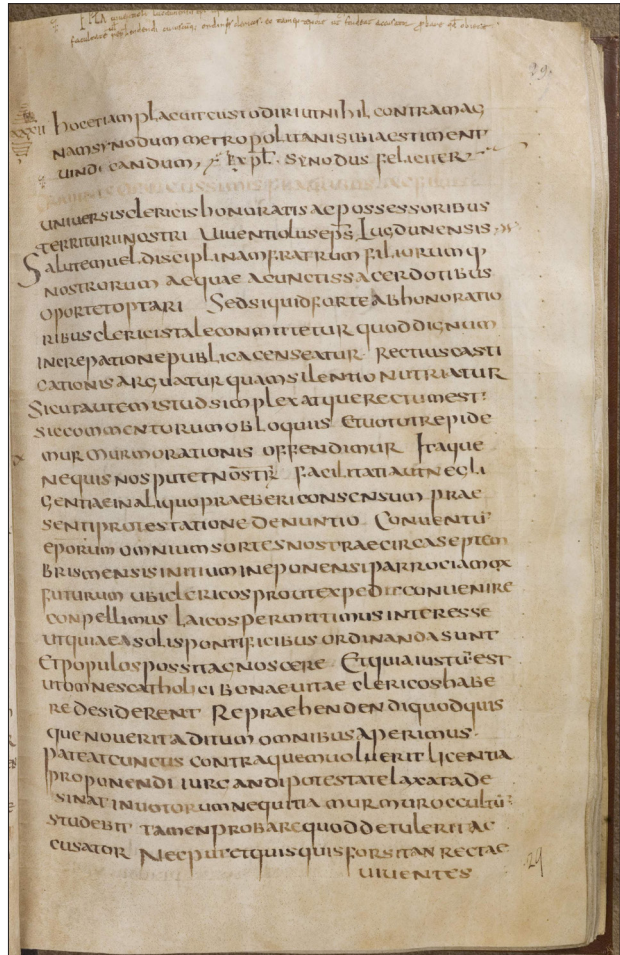 39.
XXXII hoc etiam placuit custodiri ut nihil contra mag
nam synodum metropolitani sibi aestiment
uindicandum, Expl. synodus feliciter
uniuersis clericis honoratis ac possessoribus
territurii nostri Uiuentiolus eps Lugdunensis,
Salutem uel disciplinam fratrum filiorumq
nostrorum aequae a cunctis sacerdotibus
oportet optari Sed si quid forte ab honoratio
ribus clericis tale committetur quod dignum
increpatione publica censeatur. Rectius casti
cationis arguatur quam silentio nutriatur
Sicut autem istud simplex atque rectum est:
sic commentorum obloquiis Et uoto trepide
murmurmorationis offendimur Itaque
ne quis nos putet nostr facilitati aut necli
gentiae in aliquo praeberi consensum prae
senti protestatione denuntio Conuentū
eporum omnium sortes nostrae circa septem
bris mensis initium in eponensi parrociam
futurum ubi clericos prout expedit conuenire
conpellimus laicos permittimus interesse
ut quia ea solis pontificibus ordinanda sunt
Et populos possit agnoscere Et quia iustū est
ut omnes catholici bonae uitae clericos habe
re desiderent Repraehendendi quod quis
que nouerit aditum omnibus aperimus.
pateat cuncus contra quem uoluerit licentia
proponendi iurgandi potestate laxata de
sinat in uotorum nequitia murmur occultū:
studebit tamen probare quod detulerit ac
cusator Nec putet quisquis forsitan rectae
uiuentes
29